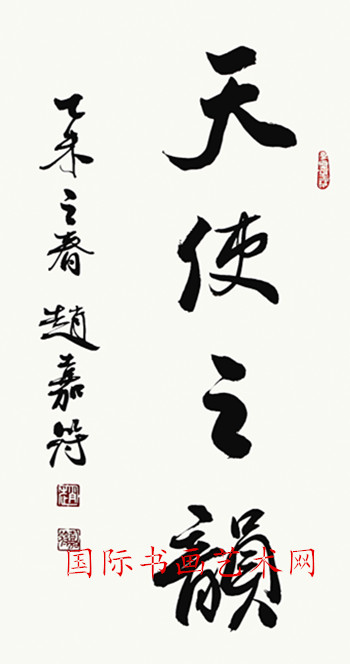 天使之韻
乙未之春 趙嘉符
国际书画艺术网